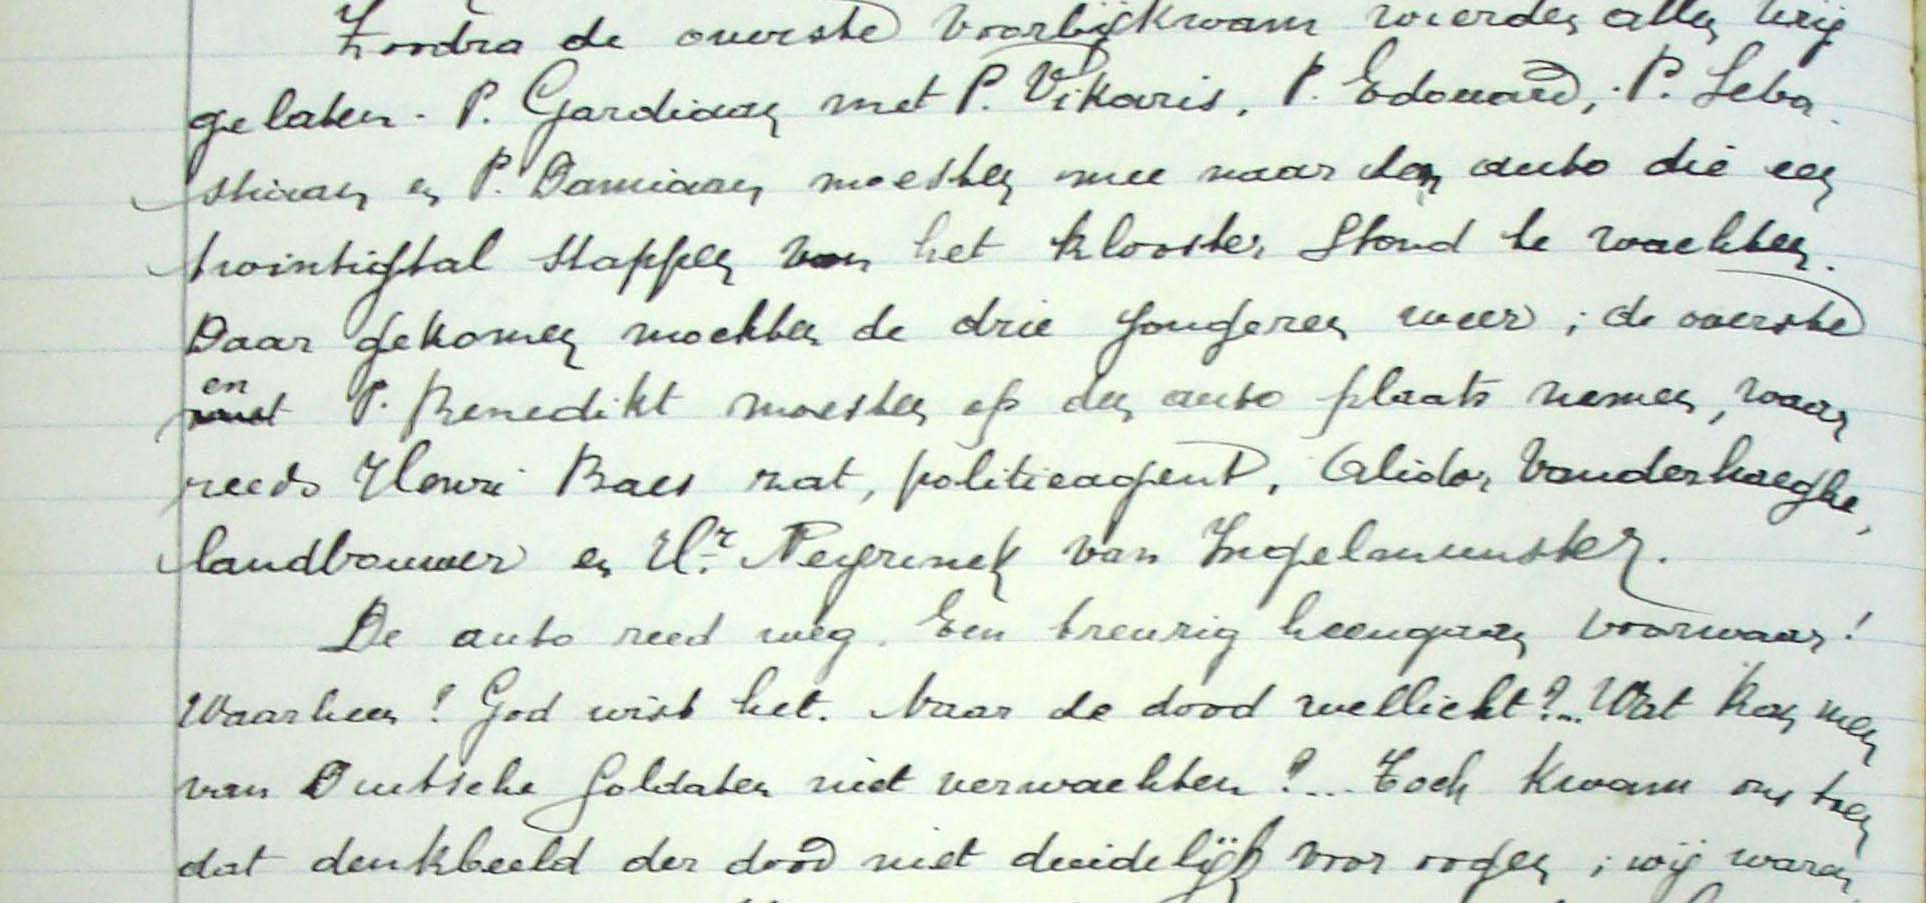 Zoodra de overste voorbijkwam wierden allen vrij
gelaten. P. Gardiaan met P. Vikaris, P. Edouard, P. Seba-
stiaan en P. Damiaan moesten mee naar den auto die een
twintigtal stappen van het klooster stond te wachten.
Daar gekomen mochten de drie jongeren weer ; de overste
en
met P. Benedikt moesten op den auto plaats nemen, waar
reeds Henri Baes zat, politieagent, Alidor Vanderhaeghe,
landbouwer en Hr. Neyrinck van Ingelmunster.
De auto reed weg. Een treurig heengaan voorwaar!
Waarheen? God wist het. Naar de dood wellicht?... Wat kan men
van Duitsche soldaten niet verwachten?... Toch kwam ons toen
dat denkbeeld der dood niet duidelijk voor oogen ; wij waren